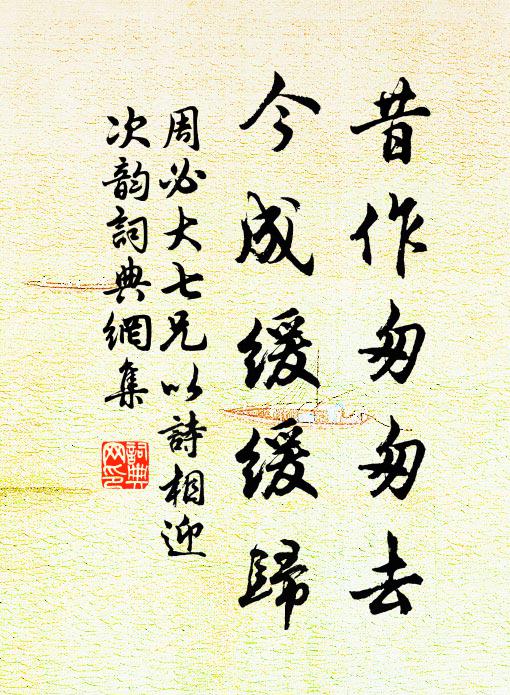 昔作匆匆去
今成緩緩歸
周必大七兄以詩相迎
次韵詞典網集
詞典
网印